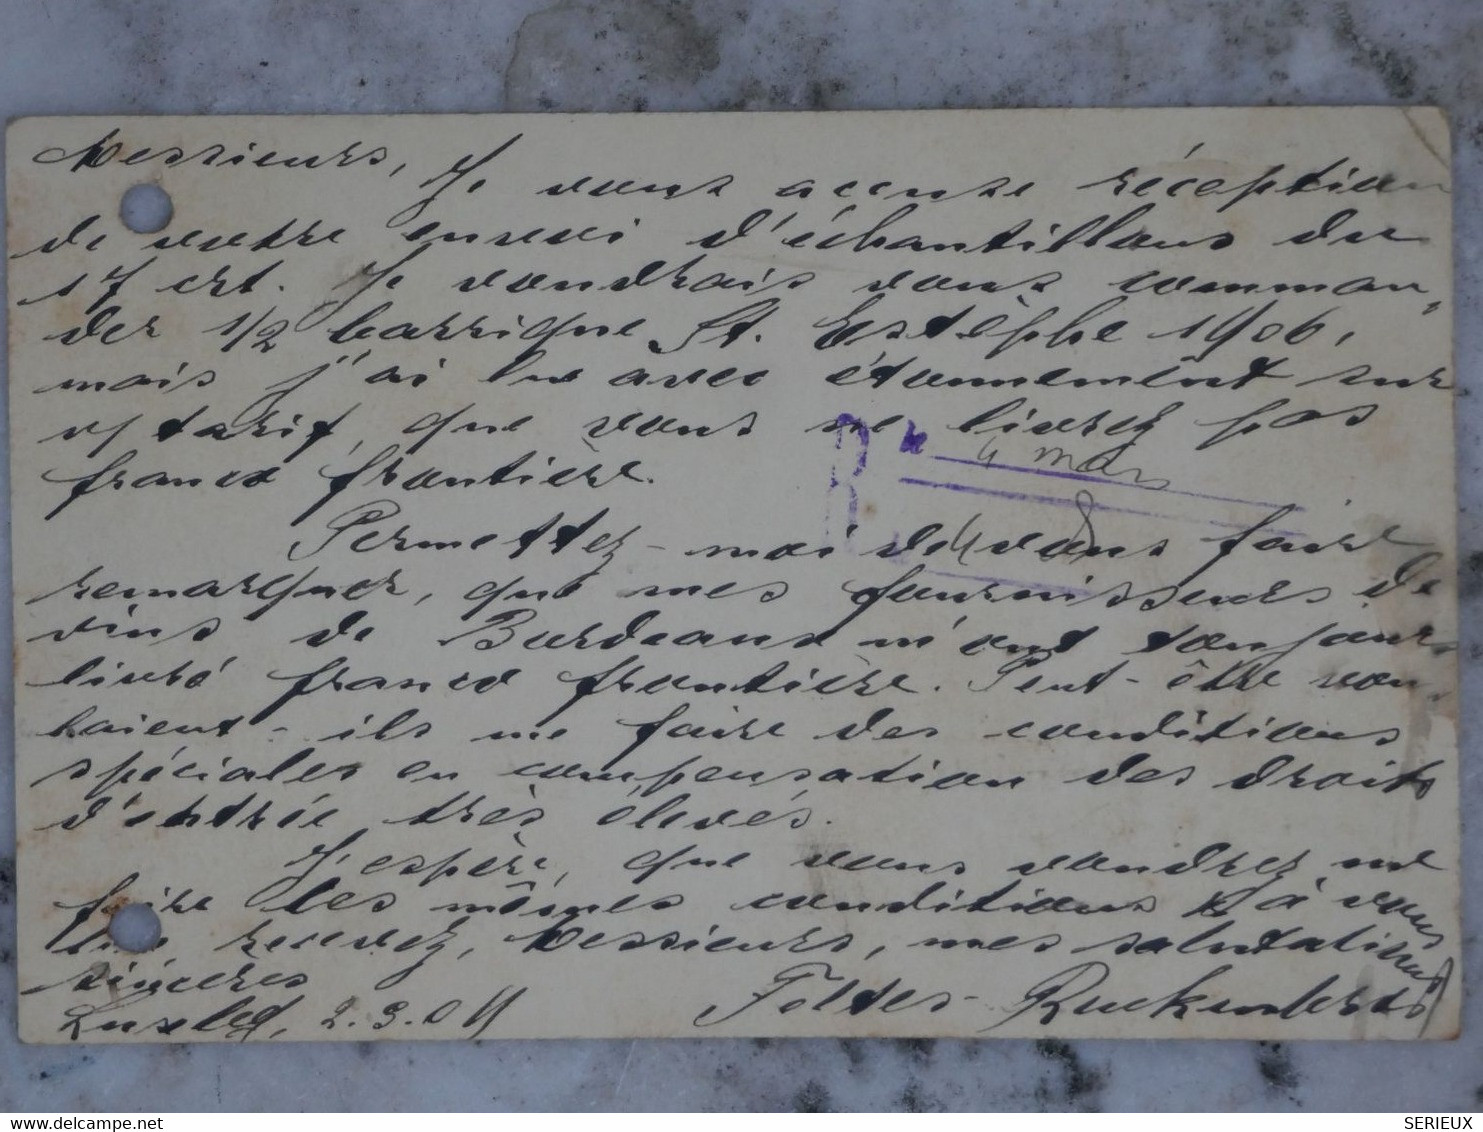 Messieurs,
Je vous accuse réception
de votre envoi d'échantillons du
17 crt. Je voudrais vous comman-
der 1/2 barrique St. Estèphe 1906,
mais j'ai lu avec étonnement sur
v/ tarif, que vous ne livrez pas
franco frontière.
R le 4 mars
Permettez-moi de vous faire
remarquer, que mes fournisseurs de
vins de Bordeaux m'ont toujours
livré franco frontière. Peut-être vou-
laient-ils me faire des conditions
spéciales en compensation des droits
d'entrée très élevés.
J'espère, que vous voudrez me
faire les mêmes conditions & à vous
lire recevez, Messieurs, mes salutations
sincères
Luxbg, 2.3.09 Feltes-Ruckenbrod
SERIEUX
delcampe.net